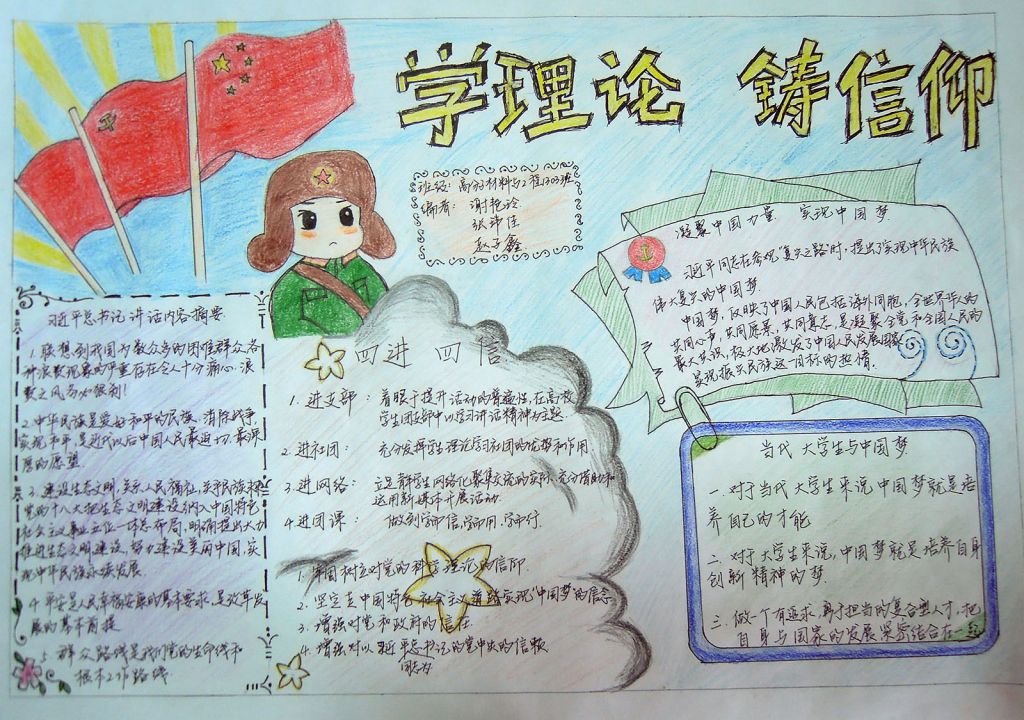 学理论 铸信仰
班级：高分材料与工程1303班
编者：谢艳玲
张沛佳
赵子鑫
习近平总书记讲话内容摘要
1.联想到我国为数众多的困难群众，各
种浪费现象的严重存在令人十分痛心，浪
费之风务必狠刹！
2.中华民族是爱好和平的民族。消除战争，
实现和平，是近代以后中国人民最迫切、最深
厚的愿望。
3.建设生态文明，关系人民福祉，关乎民族
党的十八大把生态文明建设纳入中国特色
社会主义事业五位一体总布局，明确提出大力
推进生态文明建设，努力建设美丽中国，实
现中华民族永续发展。
4.平安是人民幸福安康的基本要求，是改革发
展的基本前提
5.群众路线是我们党的生命线和
根本工作路线
四进 四信
1.进支部：着眼于提升活动的普遍性，在高校
学生团支部中以学习讲话精神为主题
2.进社团：充分发挥学生理论学习社团的优势和作用
3.进网络：立足青年学生网络化聚集交流的实际，充分借助和
运用新媒体开展活动
4.进团课：做到学而信、学而用、学而行
1.牢固树立对党的科学理论的信仰
2.坚定走中国特色社会主义道路实现“中国梦”的信念
3.增强对党和政府的信任
4.增强对以习近平总书记的党中央的信赖
同志为
凝聚中国力量 实现中国梦
习近平同志在参观“复兴之路”时，提出了实现中华民族
伟大复兴的中国梦。
中国梦，反映了中国人民包括海外同胞，全世界华人的
共同心声，共同愿景，共同意志，是凝聚全党和全国人民的
最大共识，极大地激发了中国人民发展国家
实现振兴民族这一目标的热情。
当代大学生与中国梦
一.对于当代大学生来说中国梦就是培
养自己的才能
二.对于大学生来说，中国梦就是培养自身
创新精神的梦
三.做一个有追求勇于担当的复合型人才，把
自身与国家的发展紧密结合在一起